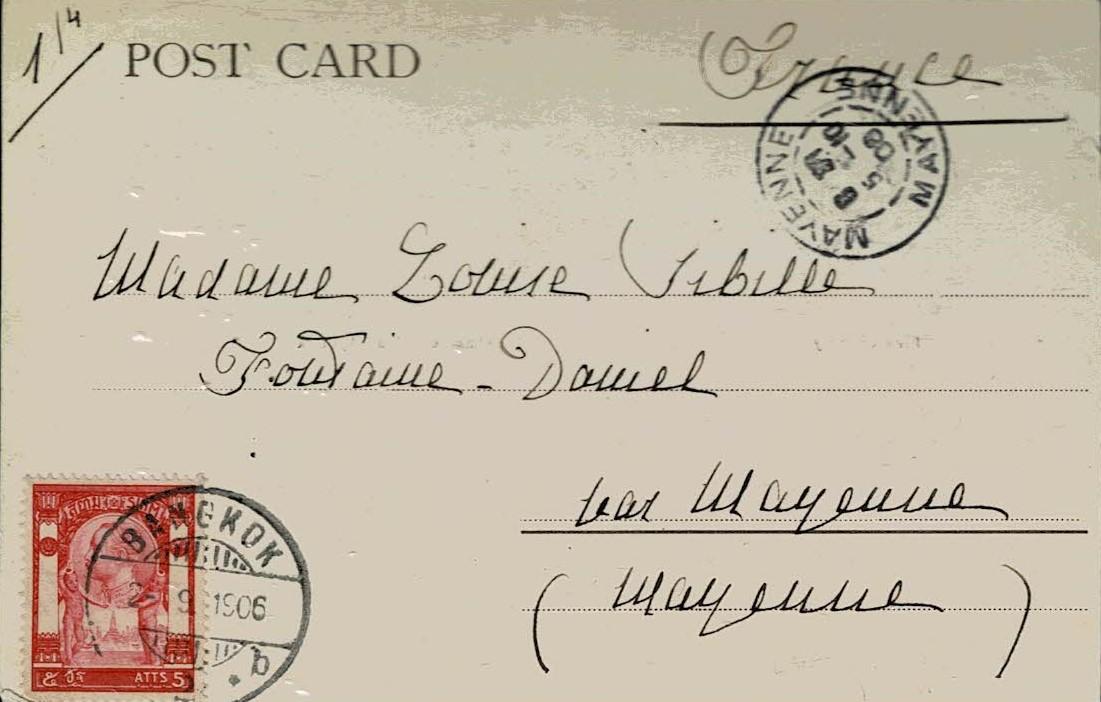 1/4
POST CARD
France
MAYENNE MAYENNE
Madame Louise Sibille
Fontaine-Daniel
par Mayenne
(Mayenne)
BANGKOK
2- 9 1906
b
ATTS 5